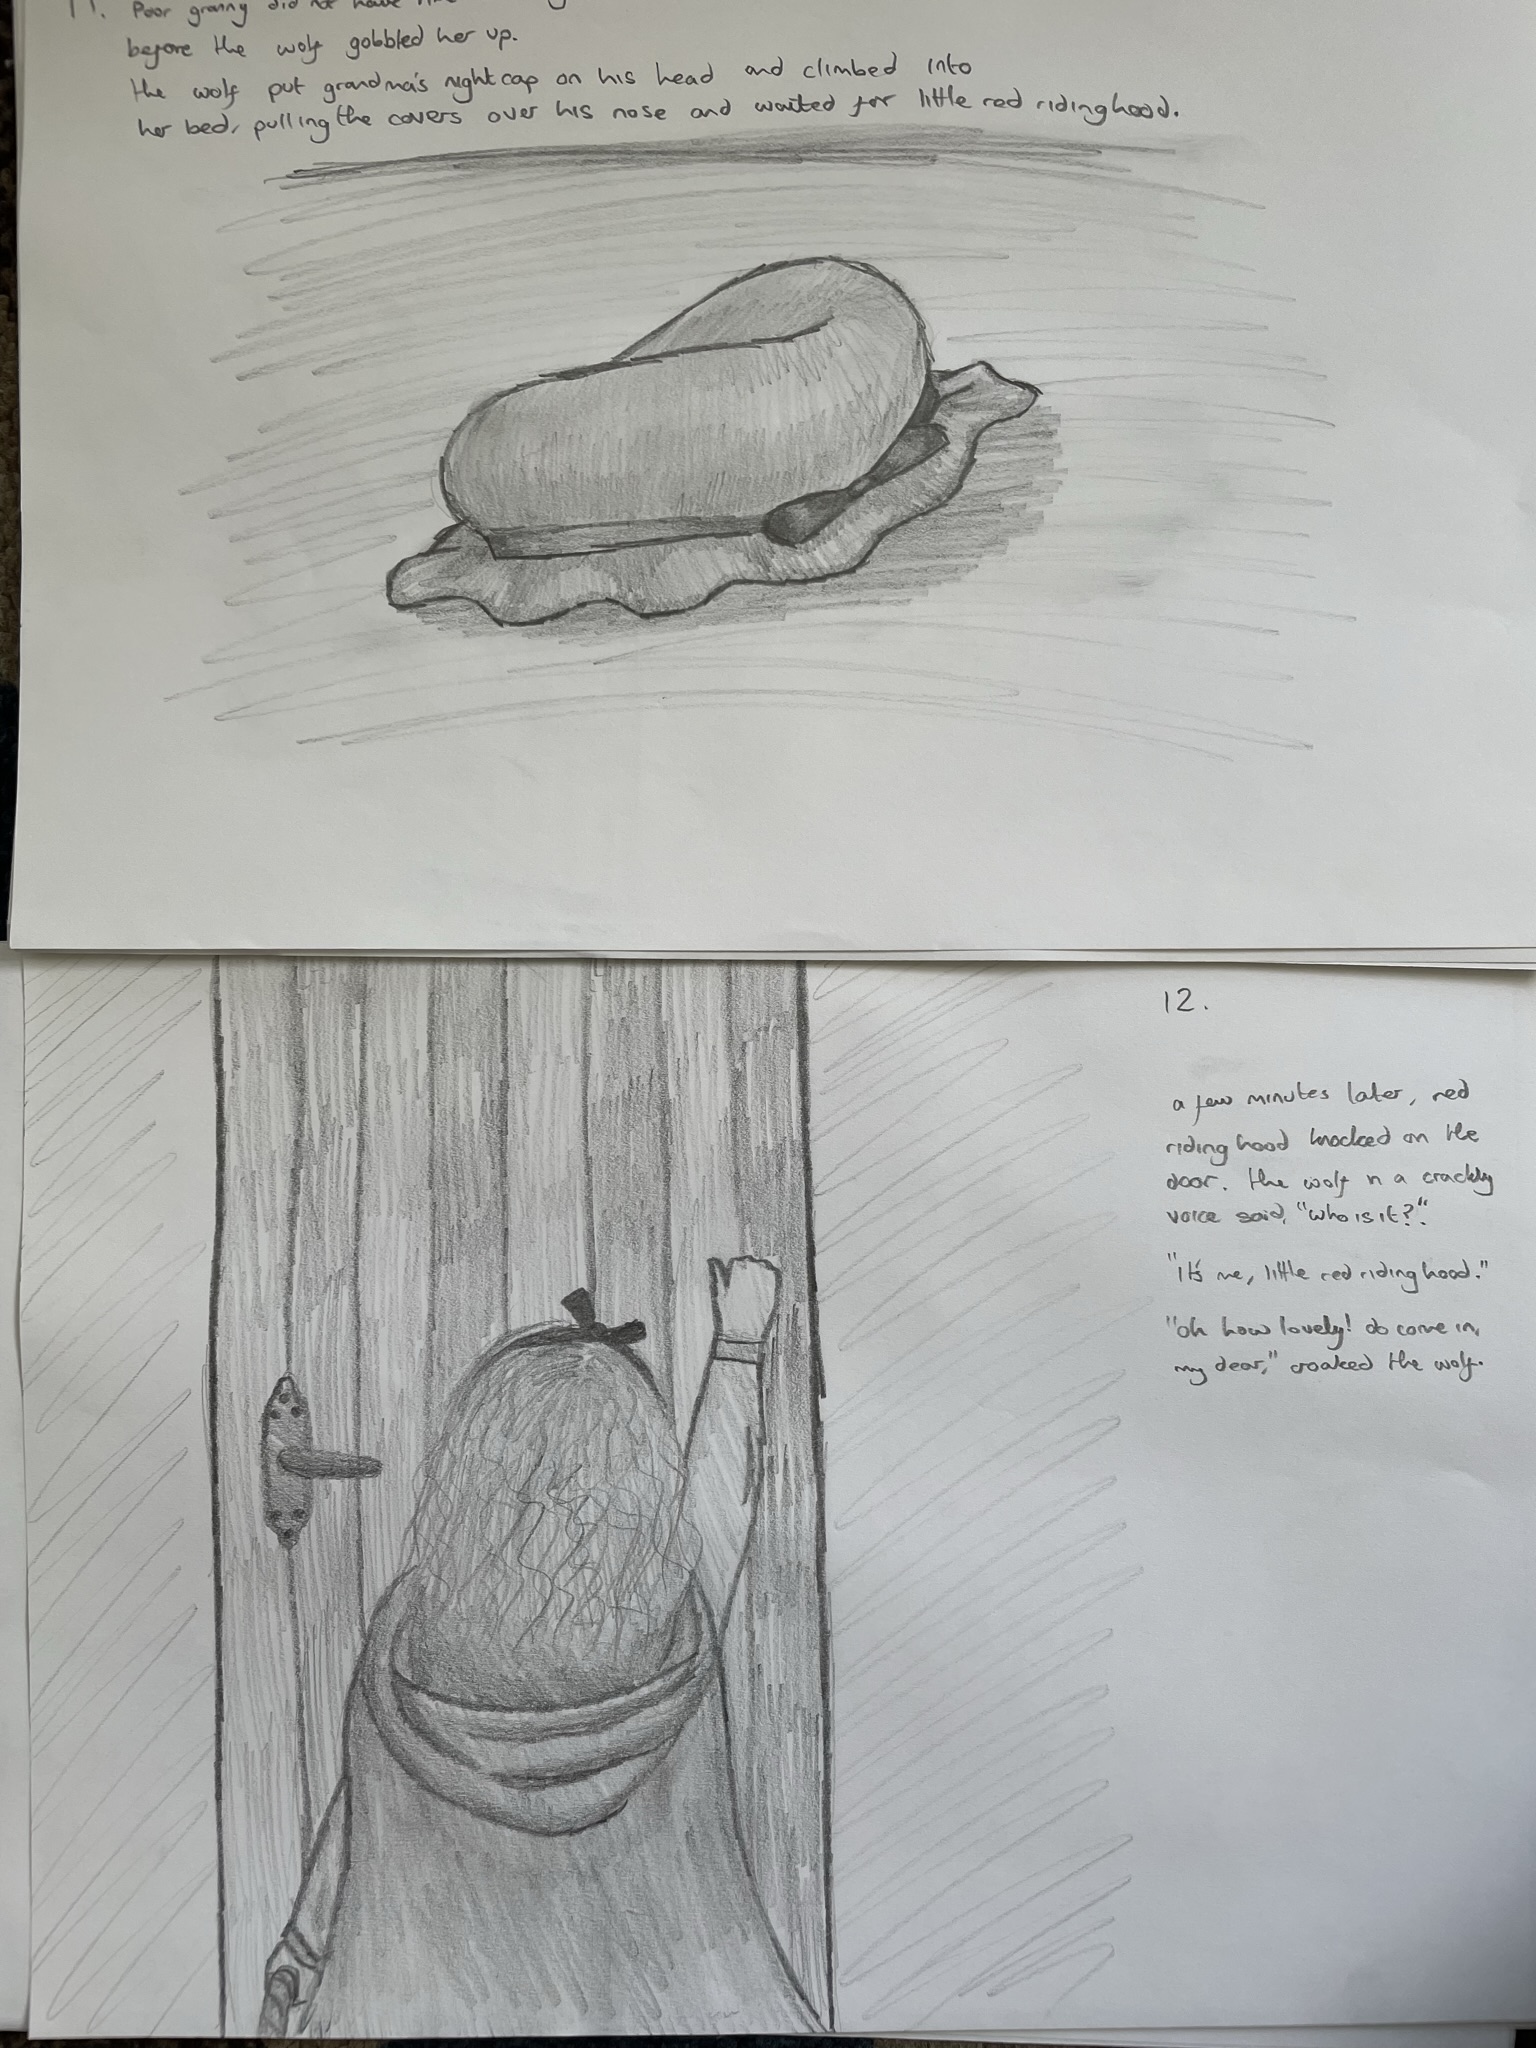 11. Poor granny did not have
before the wolf gobbled her up.
the wolf put grandma's nightcap on his head and climbed into
her bed, pulling the covers over his nose and waited for little red riding hood.
12.
a few minutes later, red
riding hood knocked on the
door. the wolf in a crackly
voice said, "who is it?".
"it's me, little red riding hood."
"oh how lovely! do come in,
my dear," croaked the wolf.